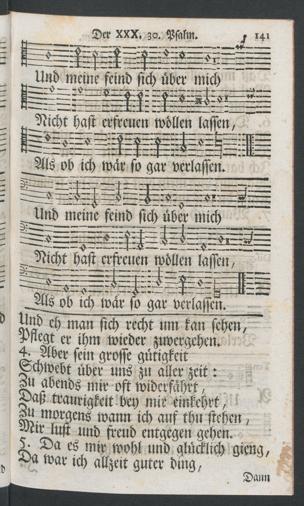 Der XXX. 30. Psalm. 141
Und meine feind sich über mich
Nicht hast erfreuen wöllen lassen,
Als ob ich wär so gar verlassen.
Und meine feind sich über mich
Nicht hast erfreuen wöllen lassen,
Als ob ich wär so gar verlassen.
Und eh man sich recht um kan sehen,
Pflegt er ihm wieder zuwergehen.
4. Aber sein grosse gütigkeit
Schwebt über uns zu aller zeit:
Zu abends mir oft widerfährt,
Daß traurigkeit bey mir einkehrt,
Zu morgens wann ich auf thu stehen,
Mir lust und freud entgegen gehen.
5. Da es mir wohl und glücklich gieng,
Da war ich allzeit guter ding,
Dann